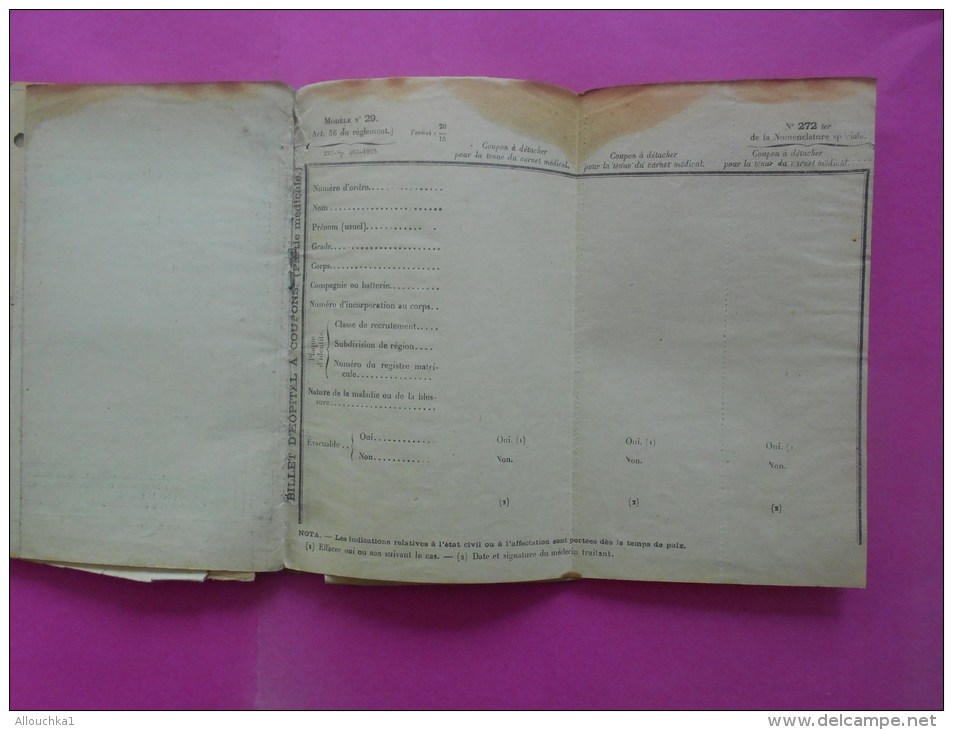 MODÈLE N° 29.
Art. 56 du règlement.)
Format : 20/15
N° 272 ter
de la Nomenclature spéciale.
Coupon à détacher
pour la tenue du carnet médical.
Coupon à détacher
pour la tenue du carnet médical.
Coupon à détacher
pour la tenue du carnet médical.
BILLET D'HÔPITAL À COUPONS. (Partie médicale.)
Numéro d'ordre
Nom
Prénom (usuel)
Grade
Corps
Compagnie ou batterie
Numéro d'incorporation au corps
Plaque d'identité
Classe de recrutement
Subdivision de région
Numéro du registre matri-
cule
Nature de la maladie ou de la bles-
sure
Évacuable
Oui
Non
Oui. (1)
Non.
(2)
Oui. (1)
Non.
(2)
Oui. (1
Non.
(2)
NOTA. — Les indications relatives à l'état civil ou à l'affectation sont portées dès le temps de paix.
(1) Effacer oui ou non suivant le cas. — (2) Date et signature du médecin traitant.
Allouchka1
delcampe.net